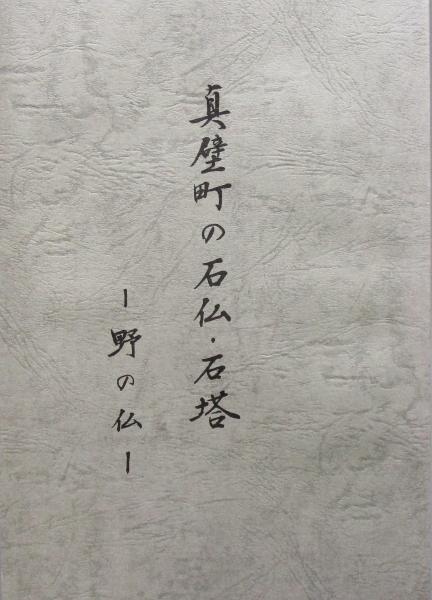 真壁町の石仏・石塔
ー野の仏ー